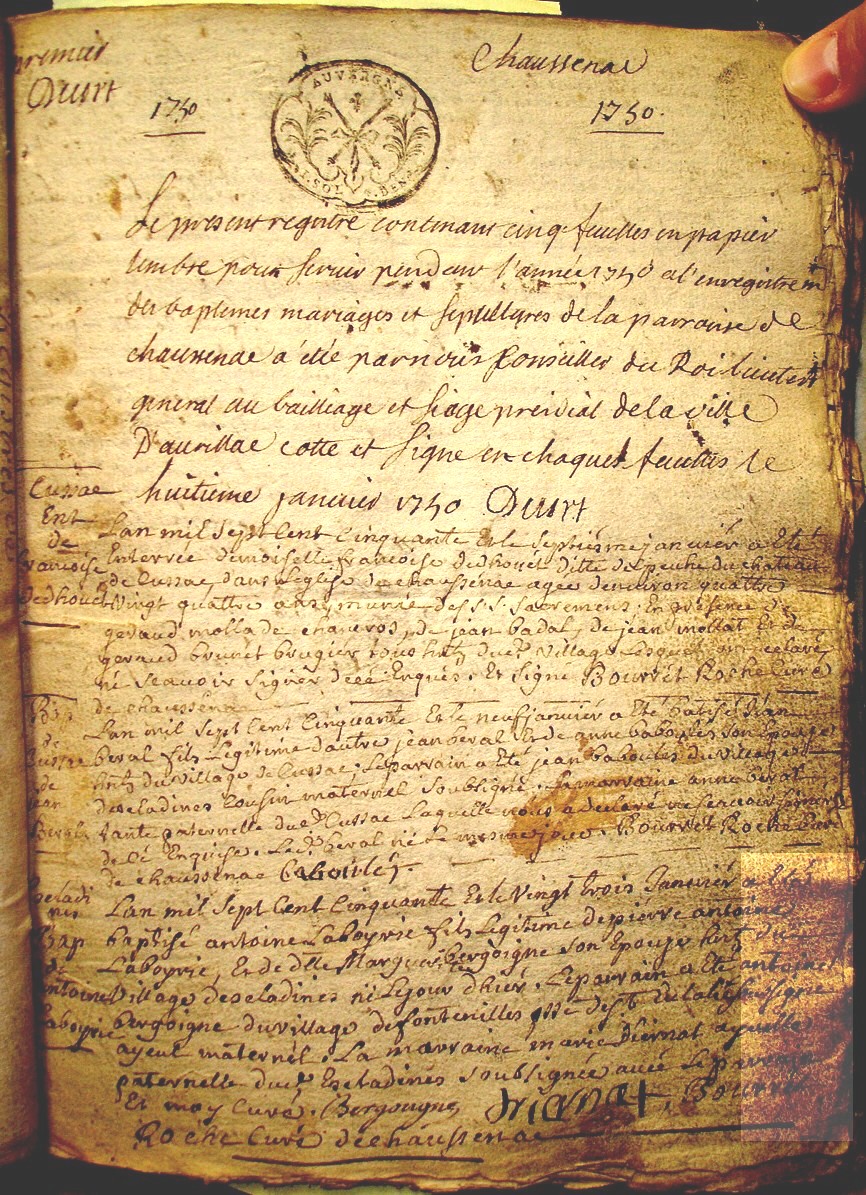 premier
Chaussenac
Durt
1750
AUVERGNE
1750.
Le present registre contenant cinq feuilles en papier
timbre pour servir pendant l'année 1750 a l'enregistrem
des baptemes mariages et sepultures de la parroisse de
chaussenac a été par nous Conseiller du Roi lieutent
general au bailliage et siege presidial de la ville
D'aurillac cotte et signe en chaques feuilles le
huitieme janvier 1750 Durt
Cussac
Ent
de
francoise
dedhouet
Lan mil sept Cent Cinquante Et le septiesme janvier a Eté
Enterrée demoiselle francoise dedhouet ditte de peuche du chateau
de Cussac dans Leglise de chaussenac agee denviron quattre
Vingt quattre ans munie des s.s. sacremens. En presence de
geraud molla de chancros, de jean badal, de jean mollat Et de
geraud brunet brugier tous du village Lesquels ont declaré
ne scavoir signer de ce Enquis. Et signe Bourret Roche Curé
de chaussenac
Bap
de
Cussac
de
jean
Beral
Lan mil sept Cent Cinquante Et le neuf janvier a Eté batisé jean
beral fils Legitime dautre jean beral Et de anne baboules son Epouse
du village de Cussac, Le parrain a Eté jean baboules du village
descladines Cousin maternel soubsigné. La marraine anne beral
tante paternelle du Cussac Laquelle nous a declaré ne scavoir signer
de Ce Enquise. Le beral né le mesme jour. Bourret Roche Curé
de chaussenac
Escladi
nes
Bap
de
antoine
Laboyrie
Lan mil sept Cent Cinquante Et le Vingt trois Janvier a Eté
baptisé antoine Laboyrie fils Legitime de pierre antoine
Laboyrie, Et de dlle Marguerite bergoigne son Epouse du
Village descladines né Le jour dhier. Le parrain a Eté antoine
bergoigne du village de fontenilles
ayeul maternel. La marraine marie ayeulle
paternelle du Escladines soubsignée avec Le parrain
Et moy Curé. Bergougne, Bourret
Roche Curé de chaussenac